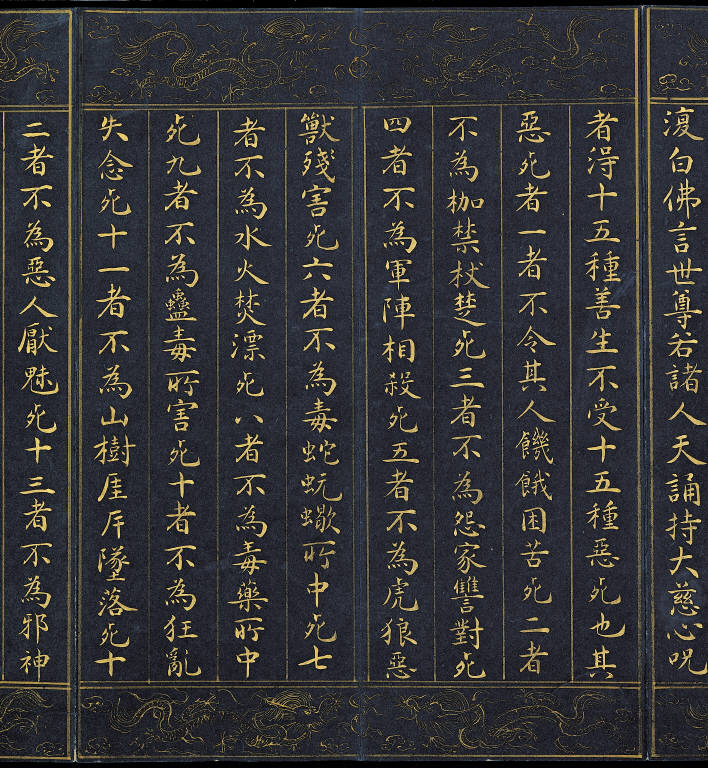 復白佛言世尊若諸人天誦持大慈心呪
者淂十五種善生不受十五種惡死也其
惡死者一者不令其人饑餓困苦死二者
不為枷禁杖楚死三者不為怨家讐對死
四者不為軍陣相殺死五者不為虎狼惡
獸殘害死六者不為毒蛇蚖蠍所中死七
者不為水火焚漂死八者不為毒藥所中
死九者不為蠱毒所害死十者不為狂亂
失念死十一者不為山樹崖岸墜落死十
二者不為惡人厭魅死十三者不為邪神